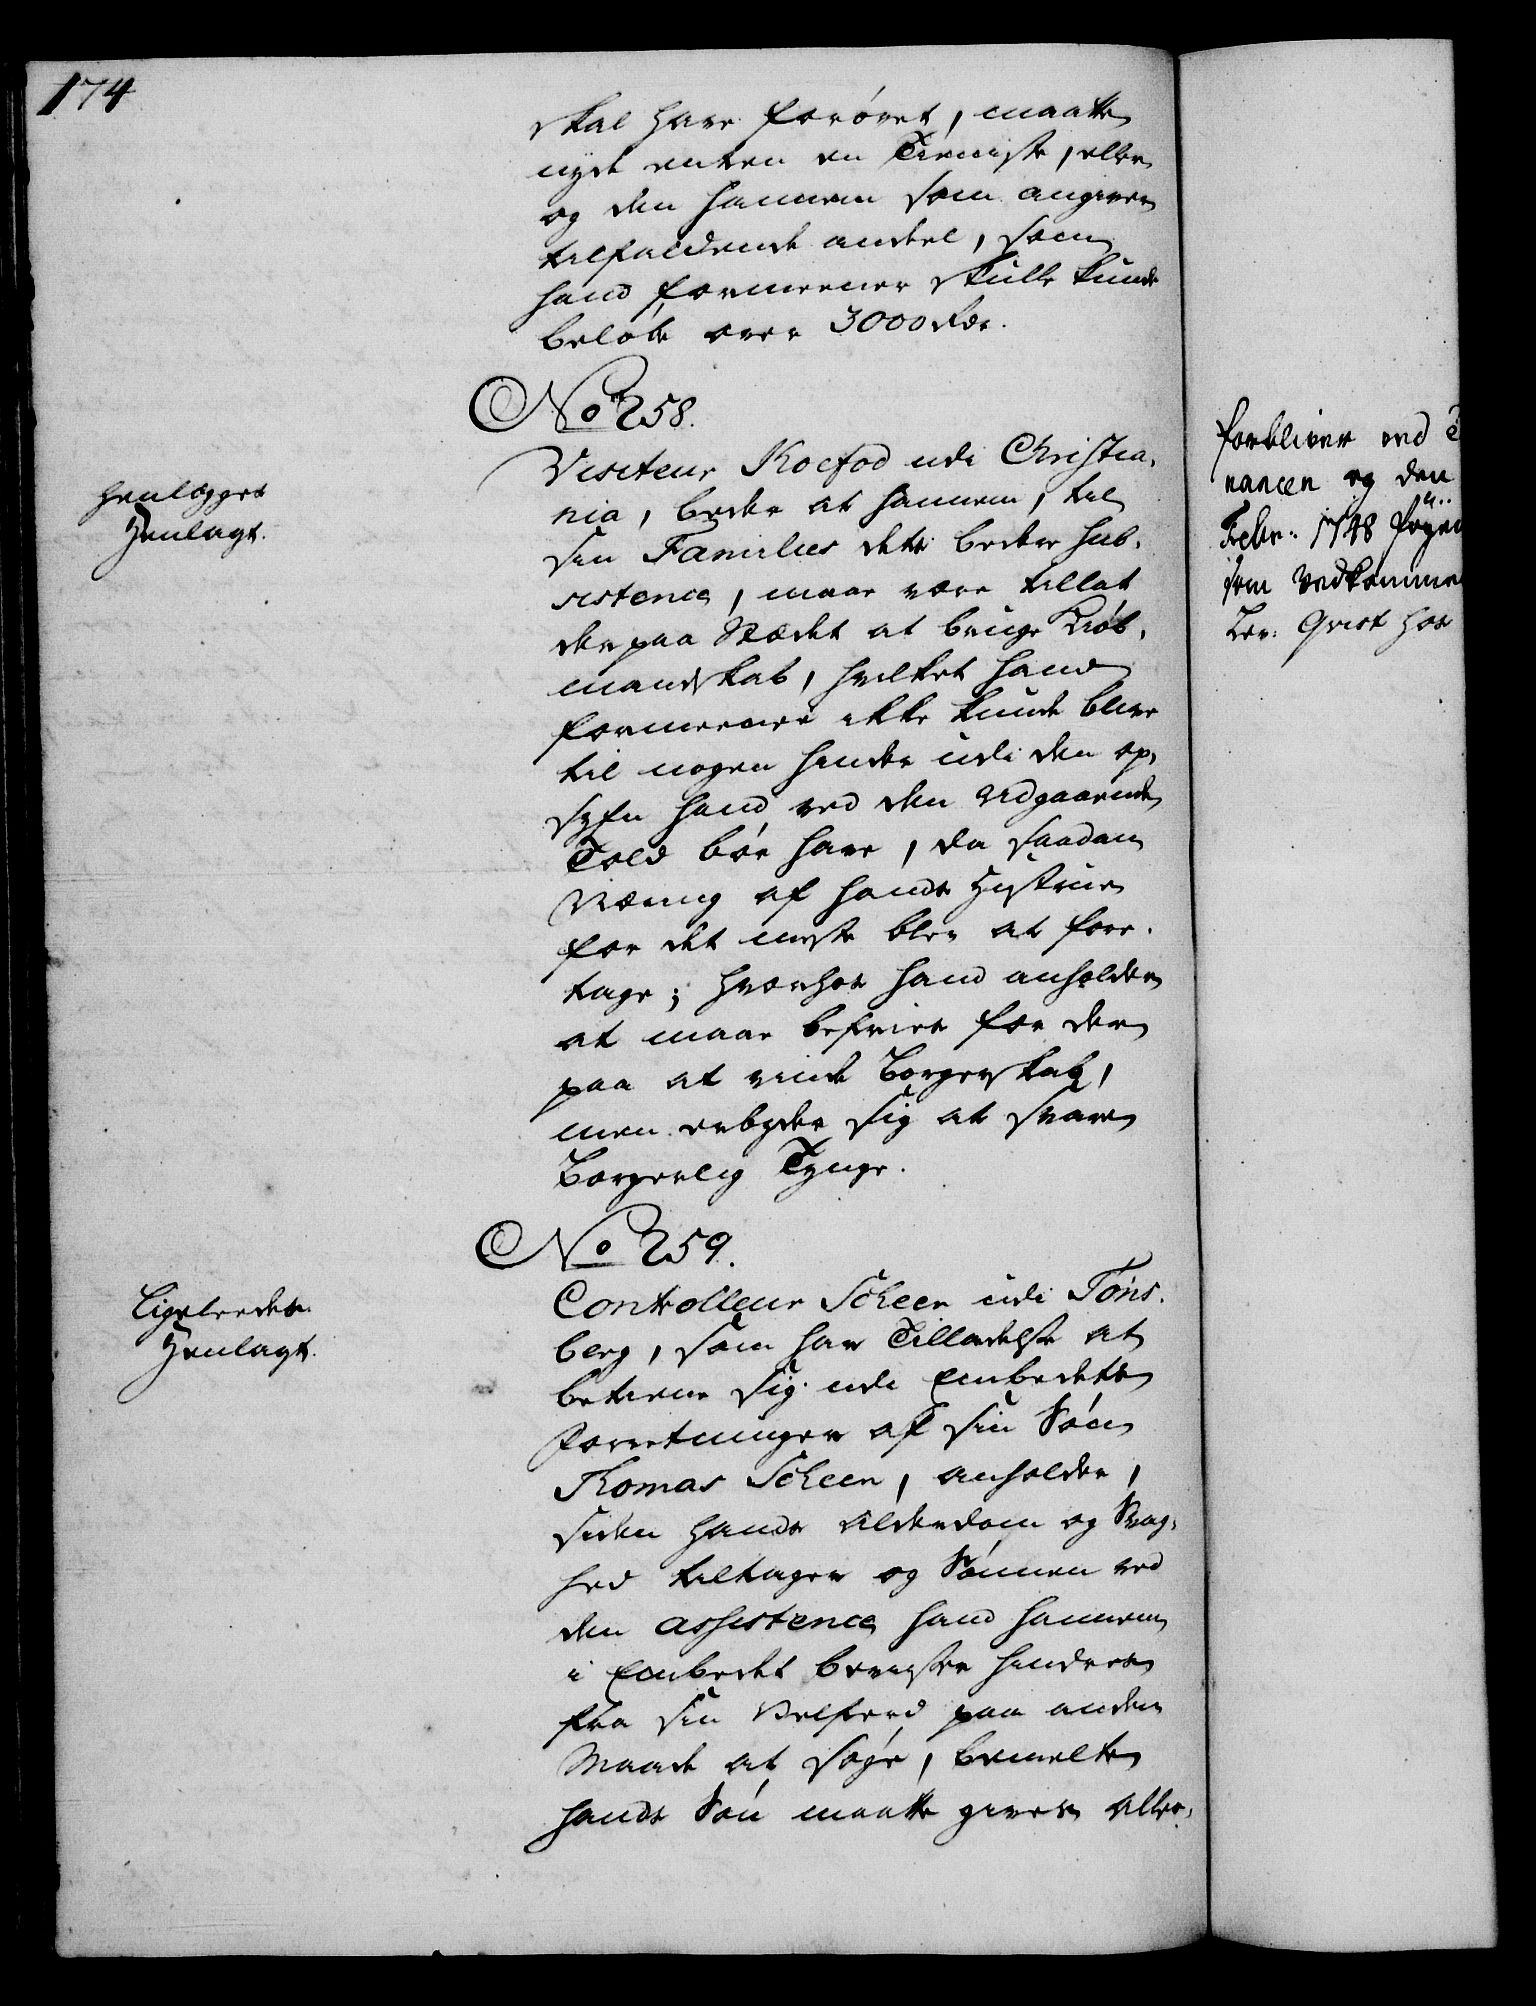 174
skal have forøvet, maatte
nyde enten en Tieniste, eller
og den hannem som angiver
tilfaldende andeel, som
hand formeener skulle kunde
beløbe over 3000 Rdr.
No 258.
Visiteur Koefod udi Christia-
nia, beder at hannem, til
sin Families dets bedre sub-
sistence, maae være tillat
der paa Stædet at bruge Kiøb-
mandskab, hvilket hand
formeener ikke kunde blive
til nogen hinder udi den op-
syn hand ved den Udgaaende
Told bør have, da saadan
Næring af hands Hustrue
for det meste blev at fore-
tage; hvorhos hand anholder
at maae befries for der
paa at vinde Borgerskab,
men erbyder sig at svare
Borgerlig Tynge.
henlegges
Henlagt.
No 259.
Controlleur Scheen udi Tøns-
berg, som har Tilladelse at
betiene sig udi Embedets
Forretninger af sin Søn
Thomas Scheen, anholder,
siden hands Alderdom og Svag-
hed tiltager og Sønnen ved
den assistence hand hannem
i Embedet beviser hindres
fra sin Velferd paa anden
Maade at søge, bemelte
hands Søn maatte gives Aller-
Ligeleedes
Henlagt.
forbliver ved
nancen og den
Febr: 1748
som vedkomme
Lev: Qvist hos